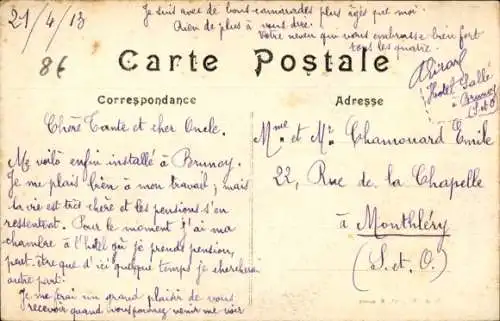 21/4/13
86
Je suis avec de bons camarades plus âgés que moi.
Rien de plus à vous dire.
Votre neveu qui vous embrasse bien fort
tous les quatre.
Hotel Sallé
à Brunoy
(S et O)
Carte Postale
Correspondance
Adresse
Chère Tante et cher Oncle.
Me voilà enfin installé à Brunoy.
Je me plais bien à mon travail; mais
la vie est très chère et les pensions s'en
ressentent. Pour le moment j'ai ma
chambre à l'hôtel où je prends pension,
peut-être que d'ici quelque temps je chercherai
autre part.
Je me ferai un grand plaisir de vous
recevoir quand vous pourrez venir me voir
Mme et Mr Chamouard Emile
22, Rue de la Chapelle
à Monthléry
(S. et. O.)